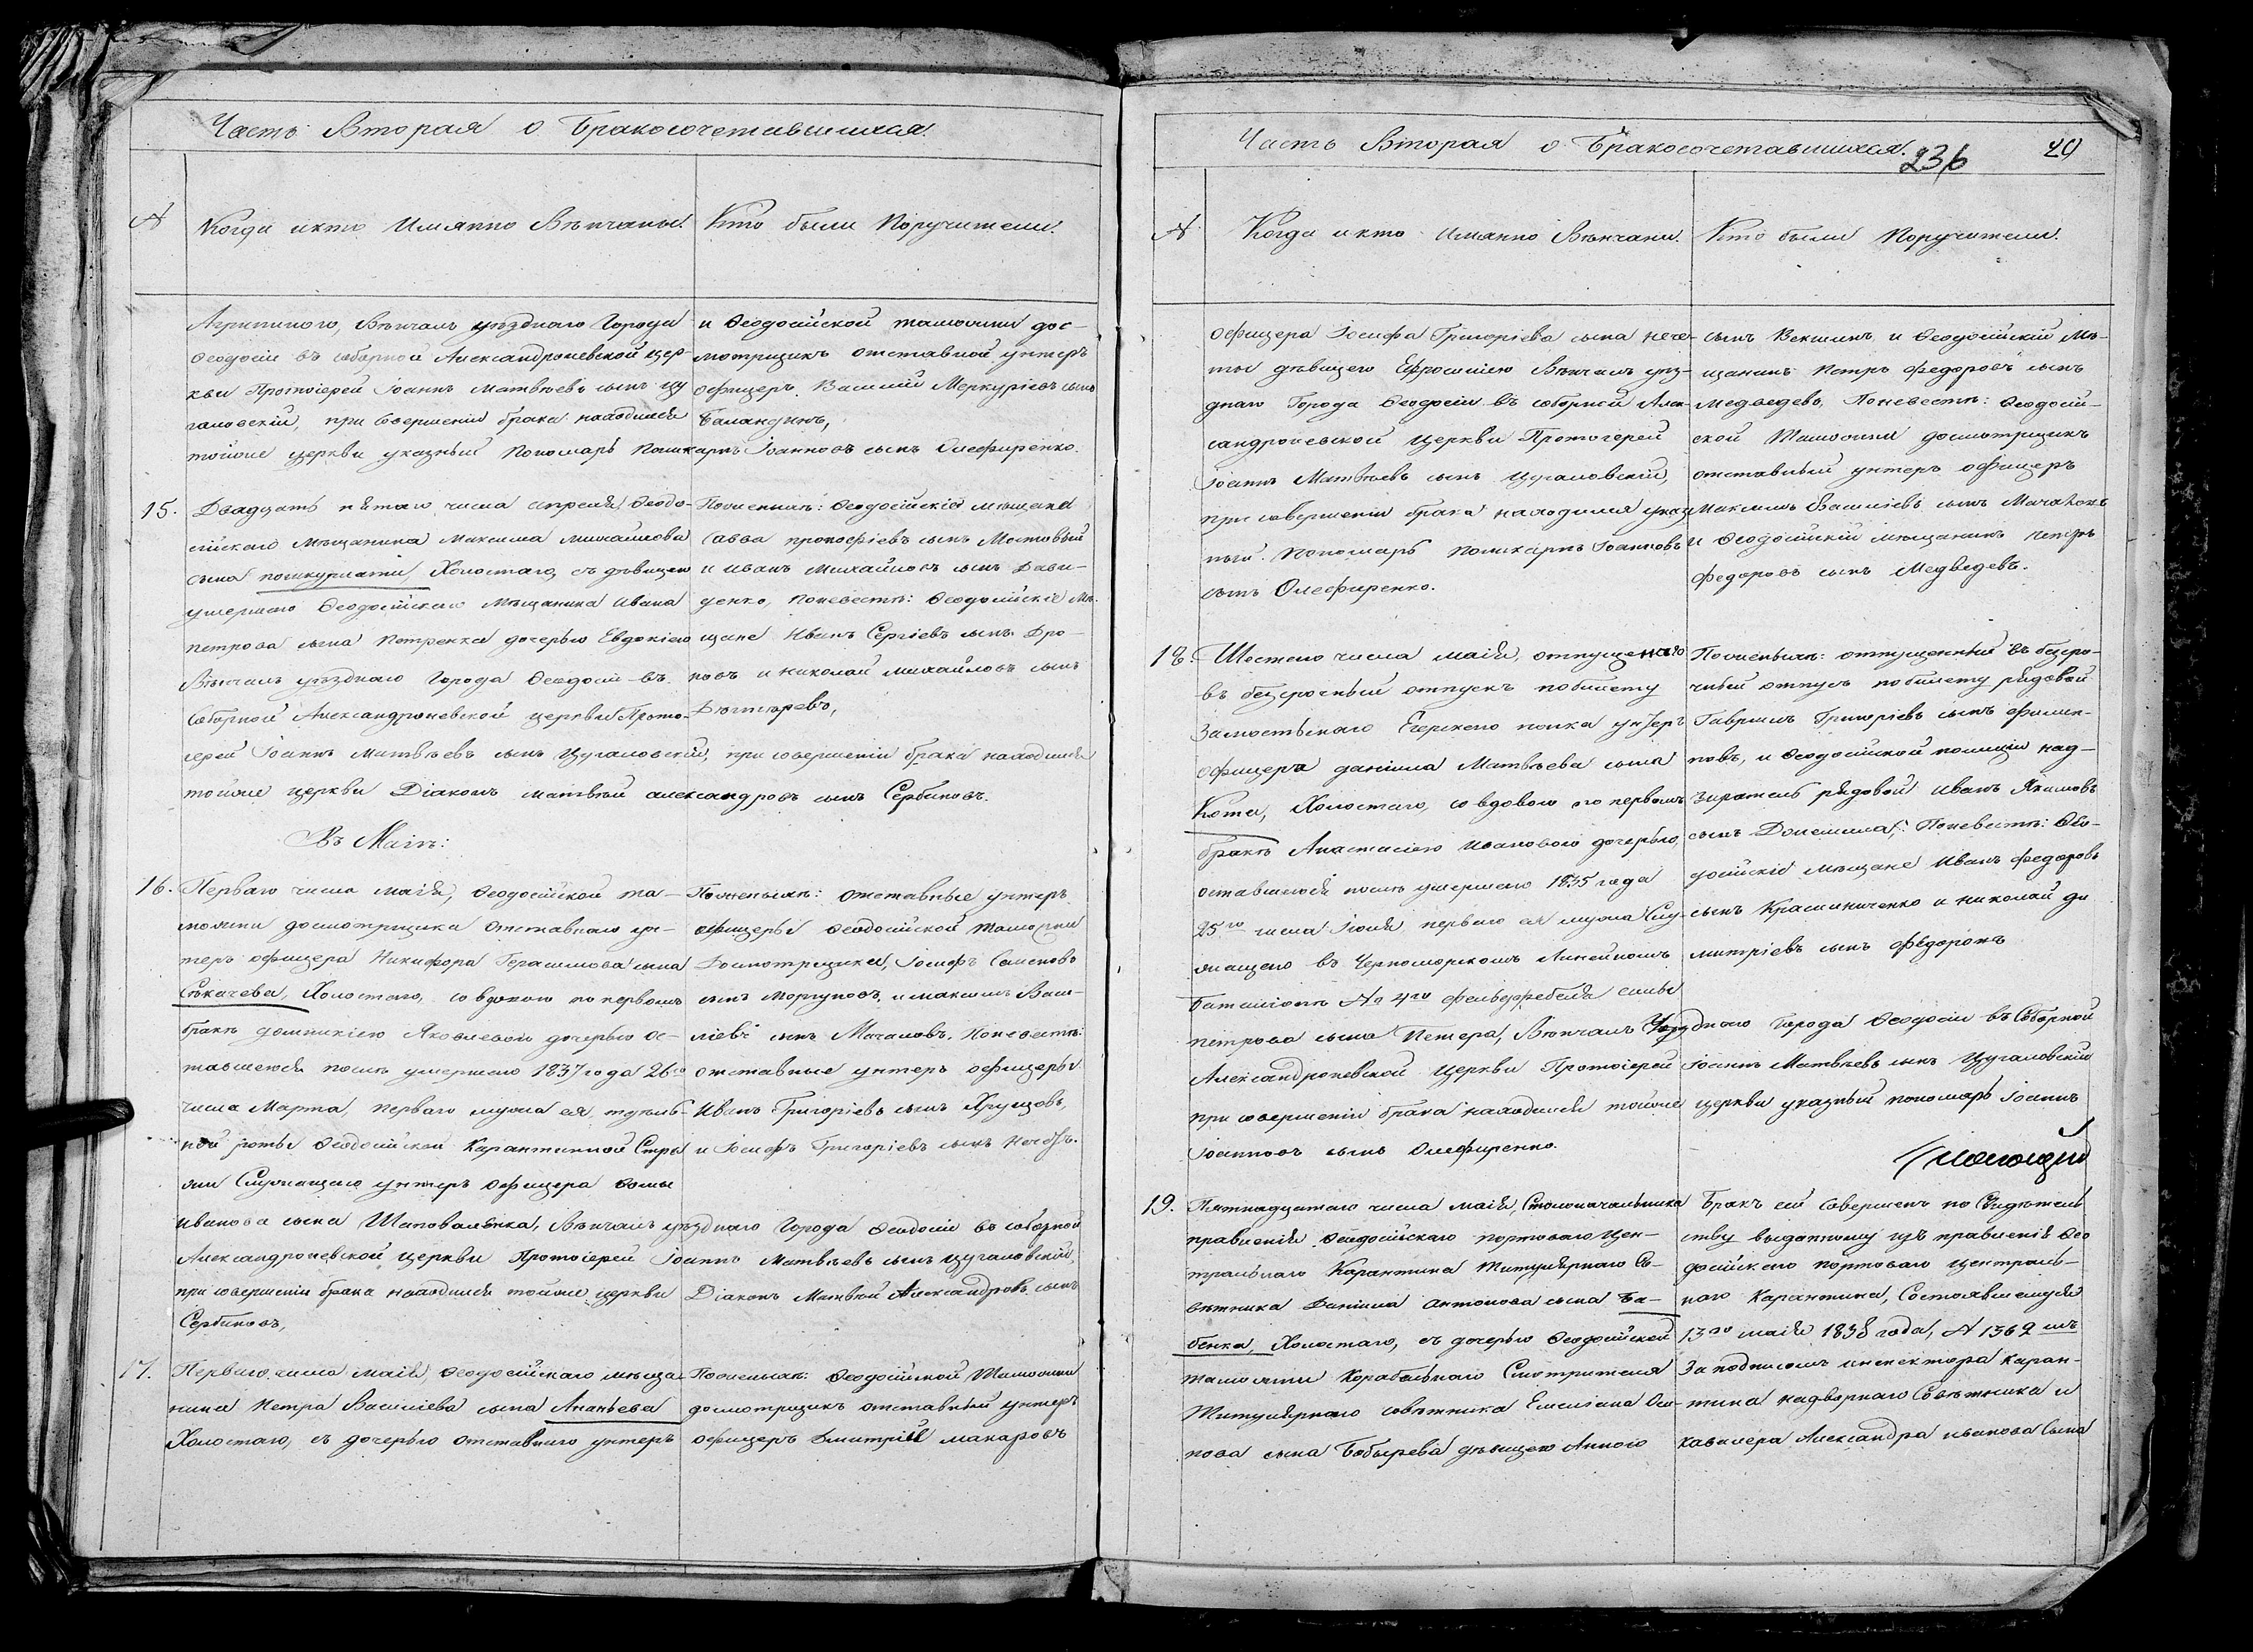 Часть Вторая о Бракосочетавшихся.
№
Когда икто Имянно Вѣнчаны.
Кто были Поручители.
Вѣнчалъ уѣзднаго Города
Ѳеодосіи въ соборной Александроневской цер-
кви Протоіерей Іоаннъ Матвѣевъ сынъ Цу
галовскій, при совершеніи брака находился
тойже церкви указный Пономарь Поликарпъ Іоанновъ сынъ Олефиренко.
и Ѳеодосійской таможни дос-
мотрщикъ отставной унтеръ
офицеръ Василій Меркуріевъ сынъ
Баландинъ,
15. Двадцать пятаго числа апреля, Ѳеодо-
сійскаго Мѣщанина Максима михайлова
сына Холостаго, съ дѣвицею
умершаго Ѳеодосійскаго Мѣщанина Ивана
петрова сына Петренка дочерью Евдокіею
Вѣнчалъ уѣзднаго Города Ѳеодосіи въ
Соборной Александроневской церкви Прото-
іерей Іоаннъ Матвѣевъ сынъ Цугаловскій, при совершеніи брака находился
тойже церкви Діаконъ матвѣй александровъ сынъ Сербиновъ.
Поженихѣ: Ѳеодосійскіе мѣщане
Савва прокофіевъ сынъ Мостовый
и Иванъ Михайловъ сынъ Дави-
денко, Поневестѣ: Ѳеодосійскіе Мѣ-
щане Иванъ Сергіевъ сынъ Дро-
новъ и Николай михайловъ сынъ
Дехтяревъ,
Въ Маіѣ:
16. Перваго числа маія, Ѳеодосійской та-
можни досмотрщика Отставнаго ун-
теръ офицера Никифора Герасимова сына
Сѣкачева, Холостаго, со вдовою по первомъ
бракѣ домникіею Яковлевою дочерью ос-
тавшеюся послѣ умершаго 1837 года 26го
числа Марта, перваго мужа ея
ной роты Ѳеодосійской Карантинной Стра
жи Служащаго унтеръ офицера Ѳомы
Иванова сына Шаповаленка, Вѣнчалъ уѣзднаго Города Ѳеодосіи въ соборной
Александроневской церкви Протоіерей Іоаннъ Матвѣевъ сынъ Цугаловскій,
при совершеніи брака находился тойже церкви Діаконъ Матвѣй Александровъ сынъ
Сербиновъ,
Поженихѣ: Отставные унтеръ
офицеры Ѳеодосійской таможни
Досмотрщики, Іосифъ Семеновъ
сынъ Моргуновъ, и максимъ Васи-
ліевъ сынъ Мачаловъ. Поневестѣ:
отставные унтеръ офицеры
Иванъ Григоріевъ сынъ Хрущовъ,
и Іосифъ Григоріевъ сынъ
17. Перваго числа маія, Ѳеодосійскаго мѣща
нина Петра Василіева сына Ананьева
Холостаго, съ дочерью отставнаго унтеръ
Поженихѣ: Ѳеодосійской Таможни
досмотрщикъ отставный унтеръ
офицеръ Дмитрій макаровъ
Часть Вторая о Бракосочетавшихся.
236
20
№
Когда икто Имянно Вѣнчаны.
Кто были Поручители.
офицера Іосифа Григоріева сына Нече-
ты дѣвицею Ефросиніею Вѣнчалъ уѣз-
днаго Города Ѳеодосіи въ соборной Алек-
сандроневской церкви Протоіерей
Іоаннъ Матвѣевъ сынъ Цугаловскій,
при совершеніи брака находился указ
ный Пономарь Поликарпъ Іоанновъ
сынъ Олефиренко.
сынъ Векшинъ, и Ѳеодосійскій Мѣ-
щанинъ Петръ федоровъ сынъ
Медведевъ, Поневестѣ: Ѳеодосій-
ской Таможни досмотрщикъ
отставный унтеръ офицеръ
Максимъ Василіевъ сынъ Мачаловъ
и Ѳеодосійскій мѣщанинъ петръ
федоровъ сынъ Медведевъ.
18. Шестаго числа маія, отпущеннаго
въ безсрочный отпускъ побилету
Замостьскаго Егерскаго полка унтеръ
офицера даніила Матвѣева сына
Кота, Холостаго, со вдовою по первомъ
бракѣ Анастасіею Ивановою дочерью,
оставшеюся послѣ умершаго 1835 года
25го числа Іюня, перваго ея мужа Слу-
жащаго въ Черноморскомъ Линейномъ
Баталіонѣ № 4го фельдфебеля
петрова сына Петера, Вѣнчалъ Уѣзднаго Города Ѳеодосіи въ Соборной
Александроневской церкви Протоіерей Іоаннъ Матвѣевъ сынъ Цугаловскій
при совершеніи брака находился тойже церкви указный пономарь Іоаннъ
Іоанновъ сынъ Олефиренко.
Поженихѣ: отпущенный въ безсро-
чный отпускъ побилету рядовой
Гавріилъ Григоріевъ сынъ Филип-
повъ, и Ѳеодосійской полиціи над-
зиратель рядовой Иванъ Якимовъ
сынъ Поневестѣ: Ѳео-
досійскіе Мѣщане Иванъ федоровъ
сынъ и николай ди
митріевъ сынъ
19. Пятнадцатаго числа маія, Столоначальника
правленія Ѳеодосійскаго портоваго Цен-
тральнаго Карантина Титулярнаго Со-
вѣтника Даніила Антонова сына Ба-
бенка, Холостаго, съ дочерью Ѳеодосійской
таможни Корабельнаго Смотрителя
Титулярнаго совѣтника Емеліана Оси-
пова сына Бобырева дѣвицею Анною
Бракъ сей Совершенъ по Свидѣтель
ству выданному изъ правленія Ѳео
досійскаго портоваго Централь-
наго Карантина, Состоявшемуся
13го маія 1838 года, № 1369 мъ
За подписомъ инспектора каран-
тина надворнаго Совѣтника и
кавалера Александра иванова Сына